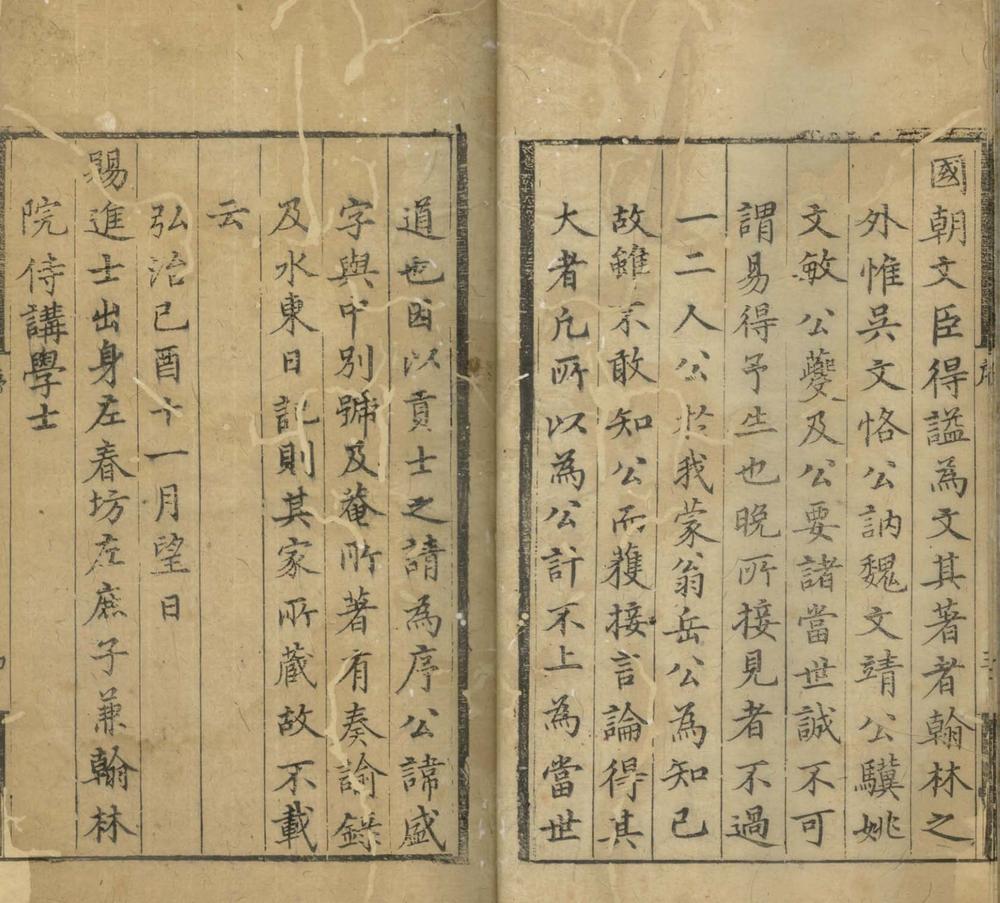 國朝文臣得謚為文其著者翰林之
外惟吳文恪公訥魏文靖公驥姚
文敏公夔及公要諸當世誠不可
謂易得予生也晚所接見者不過
一二人公於我蒙翁岳公為知己
故雖不敢知公而獲接言論得其
大者凡所以為公計不上為當世
道也因以貢士之請為序公諱盛
字與中別號及菴所著有奏諭錄
及水東日記則其家所藏故不載
云
弘治己酉十一月望日
賜進士出身左春坊左庶子兼翰林
院侍講學士